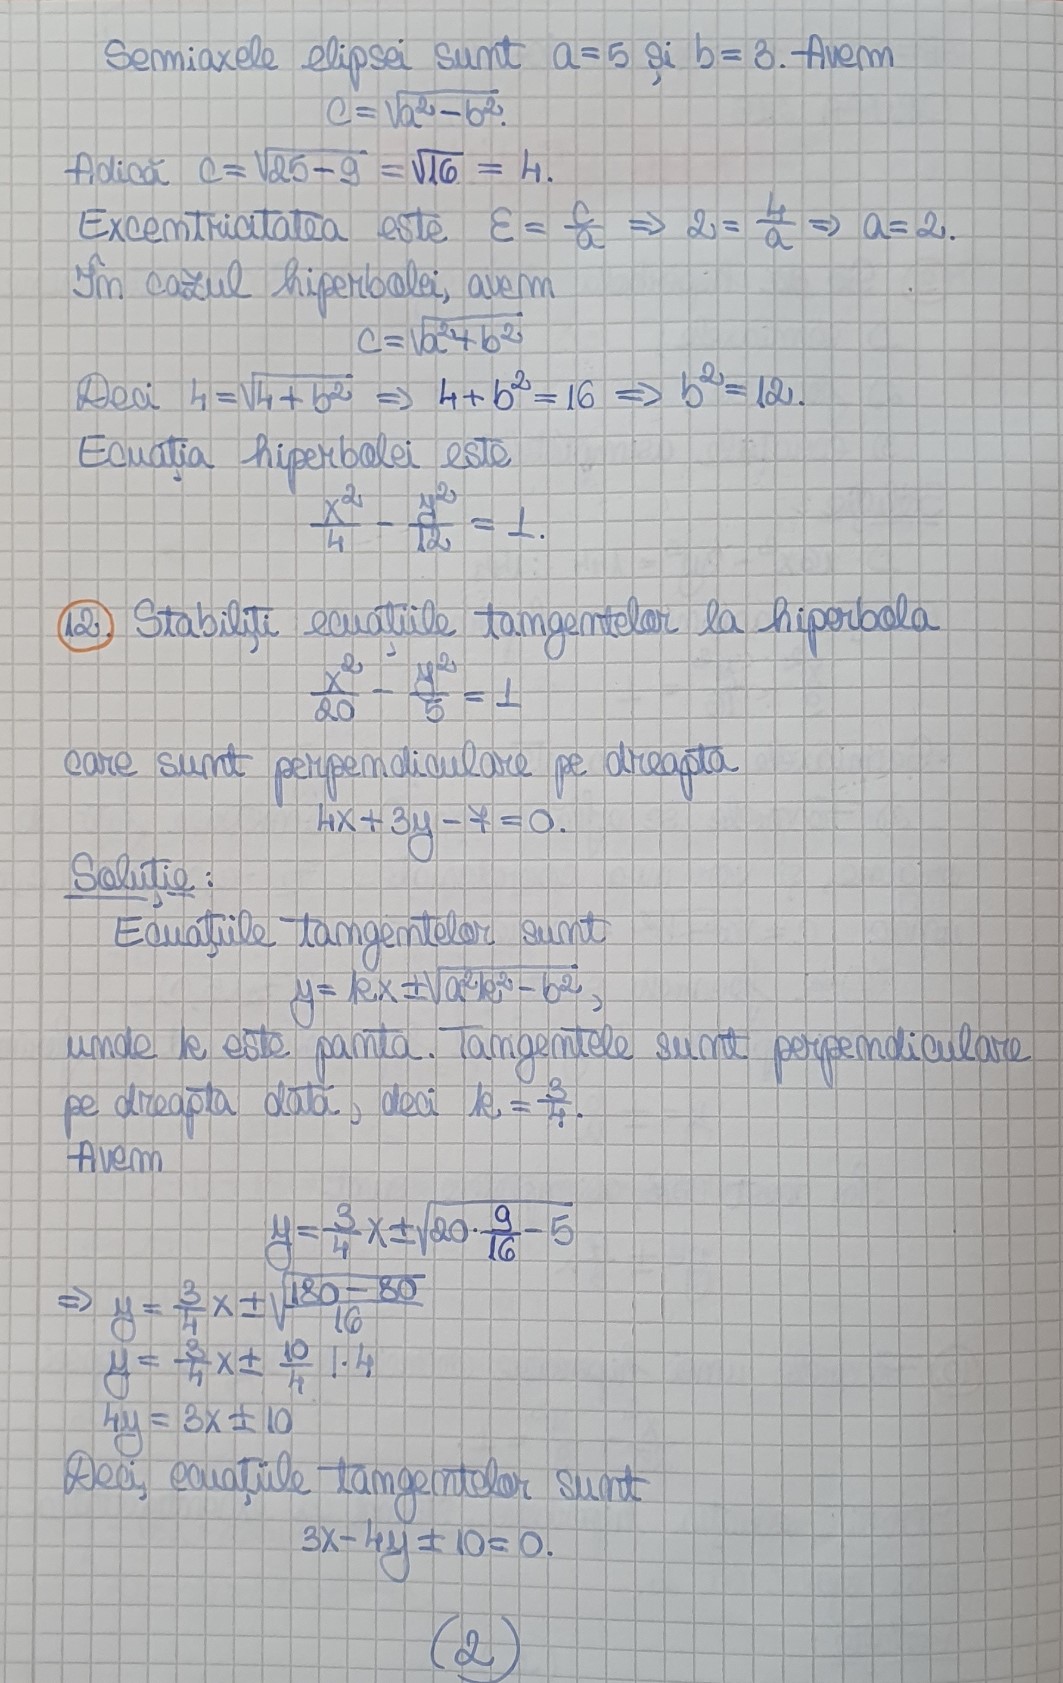 Semiaxele elipsei sunt a=5 și b=3. Avem
c=√(a²-b²).
Adică c=√(25-9)=√16=4.
Excentricitatea este ε=c/a ⇒ 2=4/a ⇒ a=2.
În cazul hiperbolei, avem
c=√(a²+b²)
Deci 4=√(4+b²) ⇒ 4+b²=16 ⇒ b²=12.
Ecuația hiperbolei este
x²/4 - y²/12 = 1.
12. Stabiliți ecuațiile tangentelor la hiperbola
x²/20 - y²/5 = 1
care sunt perpendiculare pe dreapta
4x+3y-7=0.
Soluție:
Ecuațiile tangentelor sunt
y=kx±√(a²k²-b²),
unde k este panta. Tangentele sunt perpendiculare
pe dreapta dată, deci k=3/4.
Avem
y=3/4x±√(20·9/16-5)
⇒ y=3/4x±√((180-80)/16)
y=3/4x±10/4 |·4
4y=3x±10
Deci, ecuațiile tangentelor sunt
3x-4y±10=0.
(2)